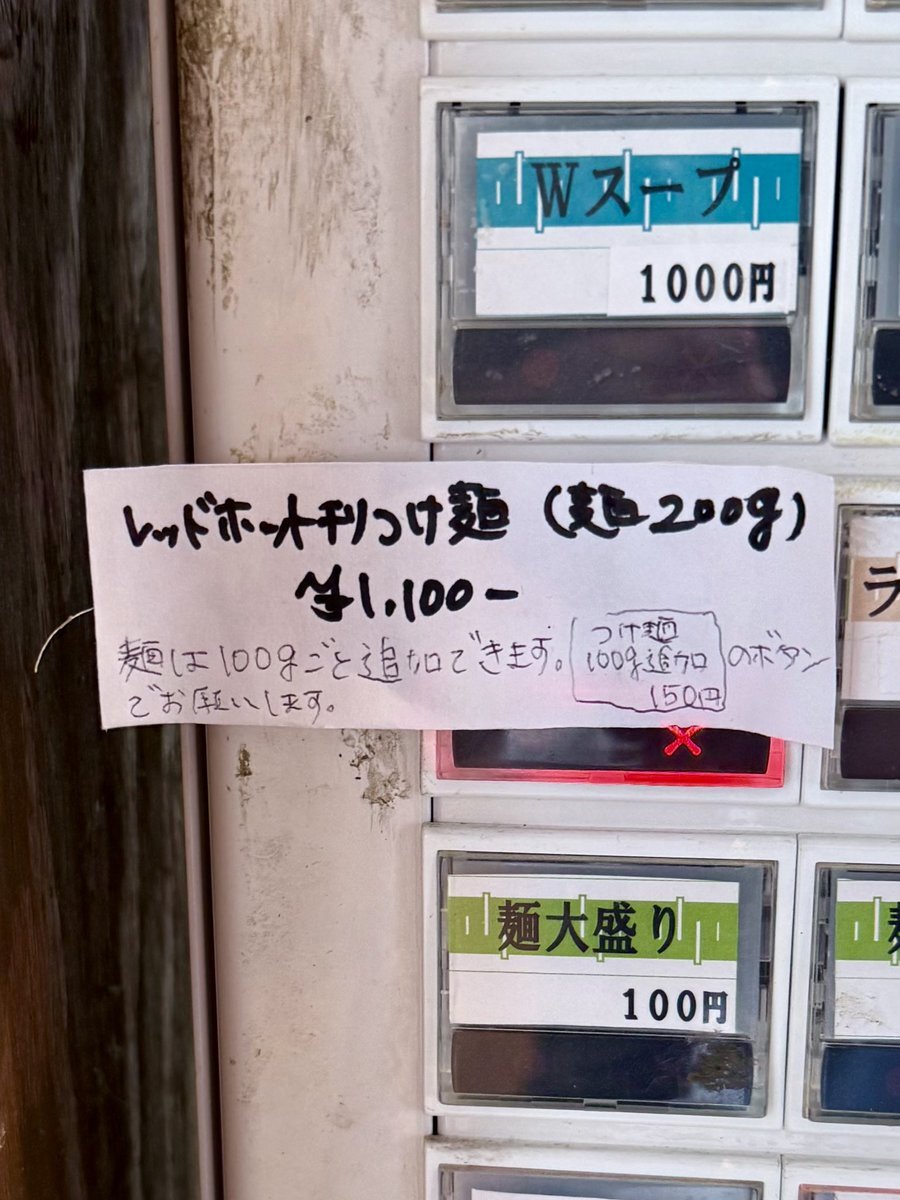 Wスープ
1000円
レッドホットチリつけ麺 (麺200g)
¥1,100-
麺は100gごと追加できます。
つけ麺
100g追加
150円
のボタン
でお願いします。
ラ
麺大盛り
100円